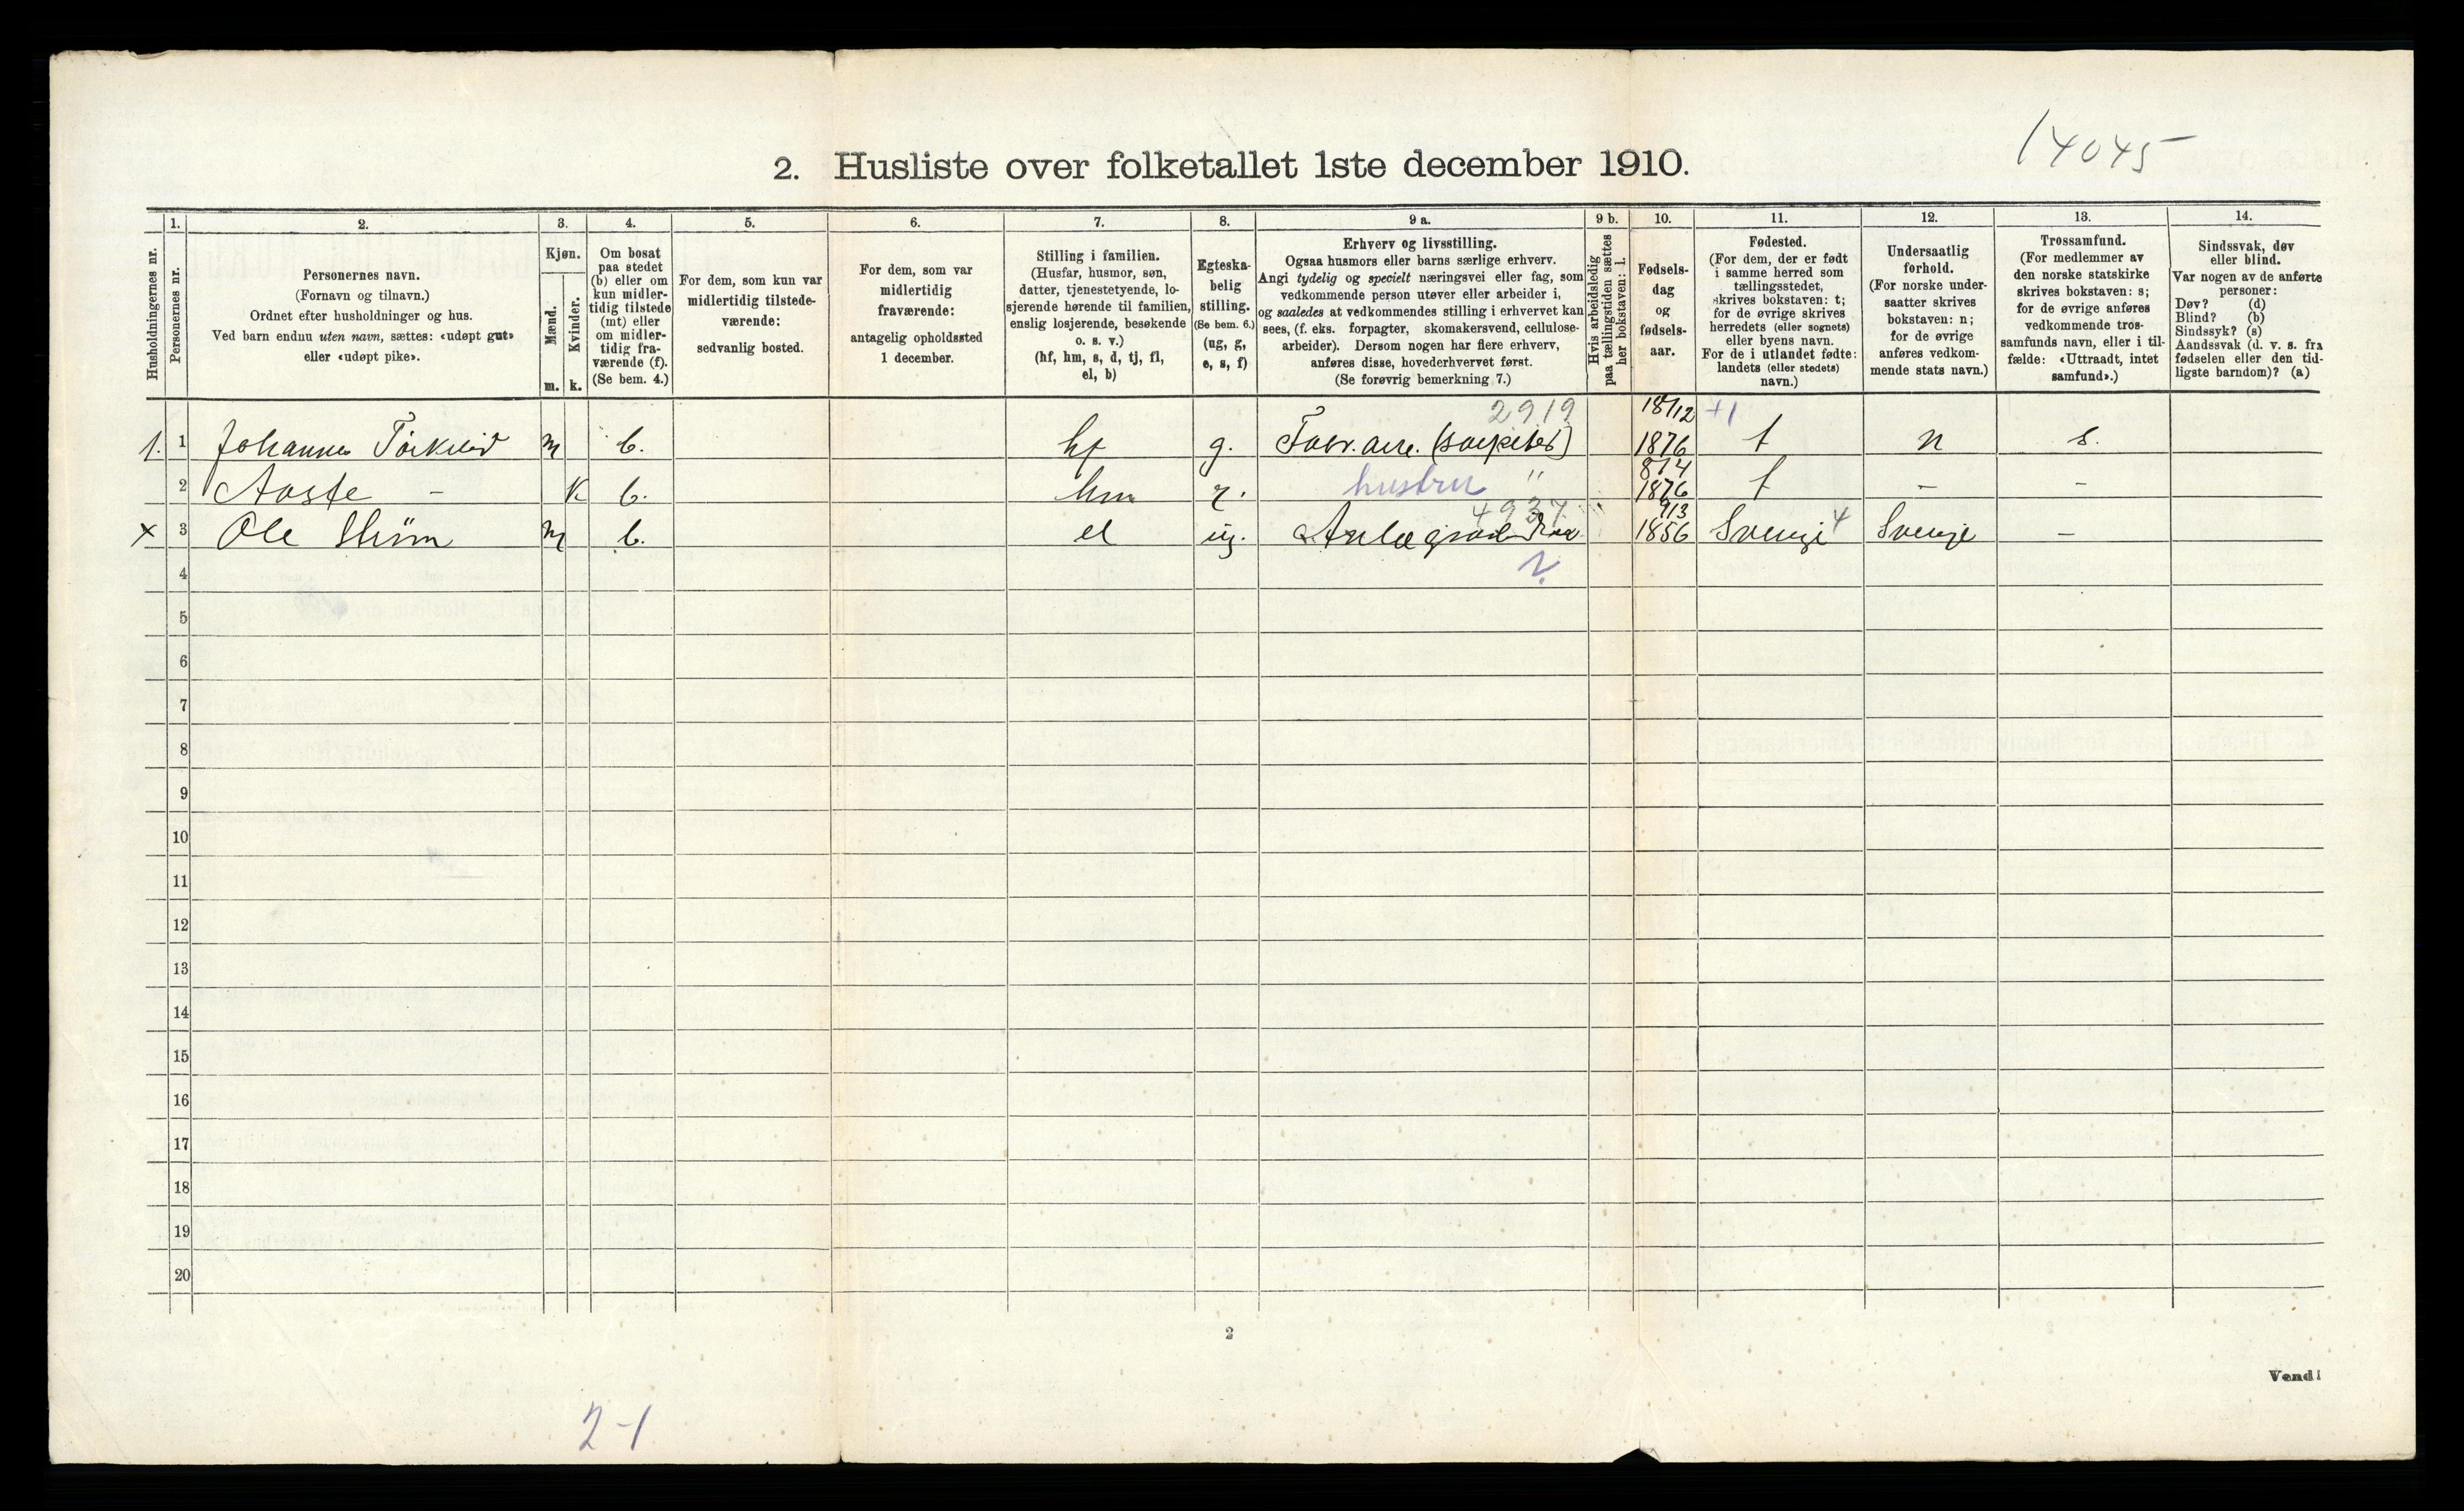 14045
2. Husliste over folketallet 1ste december 1910.
Husholdningernes nr.
1.
Personernes nr.
2.
Personernes navn.
(Fornavn og tilnavn.)
Ordnet efter husholdninger og hus.
Ved barn endnu uten navn, sættes: «udøpt gut»
eller «udøpt pike».
3.
Kjøn.
Mænd.
Kvinder.
m. k.
4.
Om bosat
paa stedet
(b) eller om
kun midler-
tidig tilstede
(mt) eller
om midler-
tidig fra-
værende (f).
(Se bem. 4.)
5.
For dem, som kun var
midlertidig tilstede-
værende:
sedvanlig bosted.
6.
For dem, som var
midlertidig
fraværende:
antagelig opholdssted
1 december.
7.
Stilling i familien.
(Husfar, husmor, søn,
datter, tjenestetyende, lo-
sjerende hørende til familien,
enslig losjerende, besøkende
o. s. v.)
(hf, hm, s, d, tj, fl,
el, b)
8.
Egteska-
belig
stilling.
(Se bem. 6.)
(ug, g,
e, s, f)
9 a.
Erhverv og livsstilling.
Ogsaa husmors eller barns særlige erhverv.
Angi tydelig og specielt næringsvei eller fag, som
vedkommende person utøver eller arbeider i,
og saaledes at vedkommendes stilling i erhvervet kan
sees, (f. eks. forpagter, skomakersvend, cellulose-
arbeider). Dersom nogen har flere erhverv,
anføres disse, hovederhvervet først.
(Se forøvrig bemerkning 7.)
9 b.
Hvis arbeidsledig
paa tællingstiden sættes
her bokstaven: l.
10.
Fødsels-
dag
og
fødsels-
aar.
11.
Fødested.
(For dem, der er født
i samme herred som
tællingsstedet,
skrives bokstaven: t;
for de øvrige skrives
herredets (eller sognets)
eller byens navn.
For de i utlandet fødte:
landets (eller stedets)
navn.)
12.
Undersaatlig
forhold.
(For norske under-
saatter skrives
bokstaven: n;
for de øvrige
anføres vedkom-
mende stats navn.)
13.
Trossamfund.
(For medlemmer av
den norske statskirke
skrives bokstaven: s;
for de øvrige anføres
vedkommende tros-
samfunds navn, eller i til-
fælde: «Uttraadt, intet
samfund».)
14.
Sindssvak, døv
eller blind.
Var nogen av de anførte
personer:
Døv? (d)
Blind? (b)
Sindssyk? (s)
Aandssvak (d. v. s. fra
fødselen eller den tid-
ligste barndom)? (a)
2919 18/12 +1
1. 1 m b. hf g. 1876 t n s.
8/4
2 Aaste - K b. hm g. hustru " 1876 t - -
4937 9/3
x 3 Ole m b. el ug. 1856 Sverige 4 Sverige -
?
4
5
6
7
8
9
10
11
12
13
14
15
16
17
18
19
20
2
Vend!
2-1